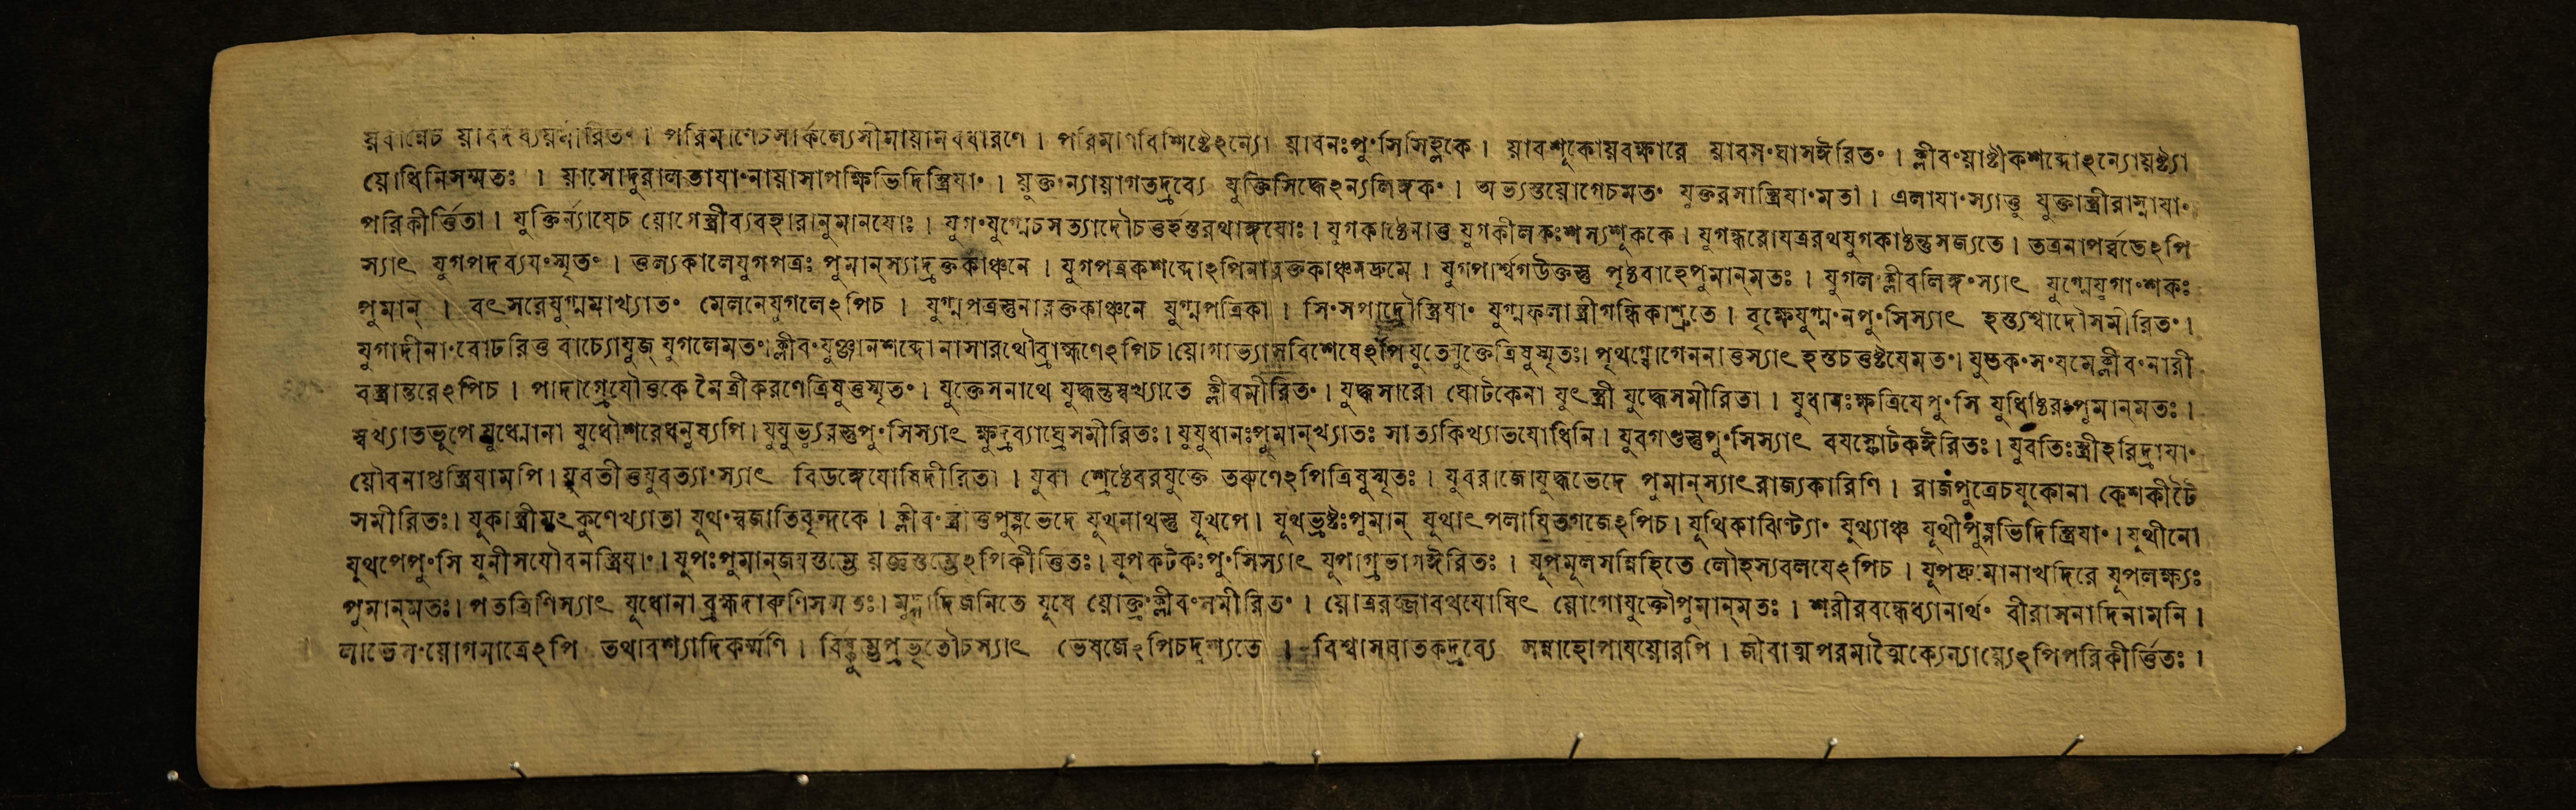 য়বান্নেচ য়াবদব্যয়মীরিতং । পরিমাণেচসাৰ্কল্যেসীমায়ামবধারণে । পরিমাণবিশিষ্টেঽন্যো য়াবনঃপুংসিসিহ্লকে । য়াবশূকোয়বক্ষারে য়াবসংঘাসঈরিতং । ক্লীবংয়াষ্টীকশব্দোঽন্যোয়ষ্ট্যা
য়োধিনিসম্মতঃ । য়াসোদুরালভাযাংনায়াসাপক্ষিভিদিস্ত্রিযাং । য়ুক্তংন্যায়াগতদ্রব্যে যুক্তিসিদ্ধেঽন্যলিঙ্গকং । অভ্যস্তয়োগেচমতং যুক্তরসাস্ত্রিযাংমতা । এলাযাংস্যাত্তু যুক্তাস্ত্রীরাস্নাযাং
পরিকীর্ত্তিতা । যুক্তির্ন্যাযেচ য়োগেস্ত্রীব্যবহারানুমানযোঃ । যুগংযুগ্মেচসত্যাদৌচতুর্হস্তরথাঙ্গযোঃ । যুগকাষ্ঠেনাত্তু যুগকীলকঃশস্যশূককে । যুগন্ধরোযত্ররথযুগকাষ্ঠন্তুসজ্যতে । তত্রনাপর্ব্বতেঽপি
স্যাৎ যুগপদব্যযংস্মৃতং । তুল্যকালেযুগপত্রঃ পুমান্স্যাদ্রক্তকাঞ্চনে । যুগপত্রকশব্দোঽপিনারক্তকাঞ্চনদ্রুমে । যুগপার্শ্বগউক্তস্তু পৃষ্ঠবাহেপুমান্মতঃ । যুগলংক্লীবলিঙ্গংস্যাৎ যুগ্মেযুগাংশকঃ
পুমান্ । বৎসরেযুগ্মমাখ্যাতং মেলনেযুগলেঽপিচ । যুগ্মপত্রস্তুনারক্তকাঞ্চনে যুগ্মপত্রিকা । সিংসপাদ্রৌস্ত্রিযাং যুগ্মফলাস্ত্রীগন্ধিকাশ্রুতে । বৃক্ষেযুগ্মংনপুংসিস্যাৎ হস্ত্যশ্বাদৌসমীরিতং ।
যুগাদীনাংবোঢরিতু বাচ্যোযুজ্ যুগলেমতং । ক্লীবংযুঞ্জানশব্দোনাসারথৌব্রাহ্মণেঽপিচ । য়োগাভ্যাসবিশেষেঽপিযুতেযুক্তেত্রিষুস্মৃতঃ । পৃথগ্যোগেননাতুস্যাৎ হস্তচতুষ্টযেমতং । যুতকংসংযমেক্লীবংনারী
বস্ত্রান্তরেঽপিচ । পাদাগ্রেযৌতকে মৈত্রীকরণেত্রিষুতুস্মৃতং । যুক্তেসনাথে যুদ্ধন্তুস্বখ্যাতে ক্লীবমীরিতং । যুদ্ধসারো ঘোটকেনা যুৎস্ত্রী যুদ্ধেসমীরিতা । যুধানঃক্ষত্রিযেপুংসি যুধিষ্ঠিরঃপুমান্মতঃ ।
স্বখ্যাতভূপে যুধেন্নানা যুধৌশরেধনুষ্যপি । যুযুভ্যুরস্তুপুংসিস্যাৎ ক্ষুদ্রব্যাঘ্রেসমীরিতঃ । যুযুধানঃপুমান্খ্যাতঃ সাত্যকিখ্যাতযোধিনি । যুবগণ্ডস্তুপুংসিস্যাৎ বযস্ফোটকঈরিতঃ । যুবতিঃস্ত্রীহরিদ্রাযাং
য়ৌবনাপ্তস্ত্রিযামপি । যুবতীতুযুবত্যাংস্যাৎ বিডঙ্গেযোষিদীরিতা । যুবা শ্রেষ্ঠেবরযুক্তে তরুণেঽপিত্রিষুস্মৃতঃ । যুবরাজোযুদ্ধভেদে পুমান্স্যাৎরাজ্যকারিণি । রাজপুত্রেচযুকোনা কেশকীটৈ
সমীরিতঃ । যুকাস্ত্রীমৎকুণেখ্যাতা যুথংস্বজাতিবৃন্দকে । ক্লীবংস্ত্রাতুপুষ্পভেদে যুথনাথস্তু যূথপে । যূথভ্রষ্টঃপুমান্ যূথাৎপলাযিতগজেঽপিচ । যুথিকাঝিণ্ট্যাং যুথ্যাঞ্চ যূথীপুষ্পভিদিস্ত্রিযাং । যুথীনো
যুথপেপুংসি যুনীসযৌবনস্ত্রিযাং । যুপঃপুমান্জযস্তম্ভে য়জ্ঞস্তম্ভেঽপিকীর্ত্তিতঃ । যুপকটকঃপুংসিস্যাৎ যুপাগ্রভাগঈরিতঃ । যূপমূলসন্নিহিতে লৌহস্যবলযেঽপিচ । যূপদ্রুমোনাখদিরে যূপলক্ষ্যঃ
পুমান্মতঃ । পতত্রিণিস্যাৎ যুধোনা ব্রহ্মদারুণিসম্মতঃ । মুদ্গাদিজনিতে যূষে য়োক্ত্রংক্লীবংসমীরিতং । য়োত্ররজ্জাবথযোষিৎ য়োগোযুক্তৌপুমান্মতঃ । শরীরবন্ধেধ্যানার্থং বীরাসনাদিনামনি ।
লাভেসংয়োগমাত্রেঽপি তথাবশ্যাদিকর্ম্মণি । বিষ্কুম্ভপ্রভৃতৌচস্যাৎ ভেষজেঽপিচদৃশ্যতে । বিশ্বাসঘাতকদ্রব্যে সন্নাহোপাযয়োরপি । জীবাত্মপরমাত্মৈক্যেন্যায়্যেঽপিপরিকীর্ত্তিতঃ ।